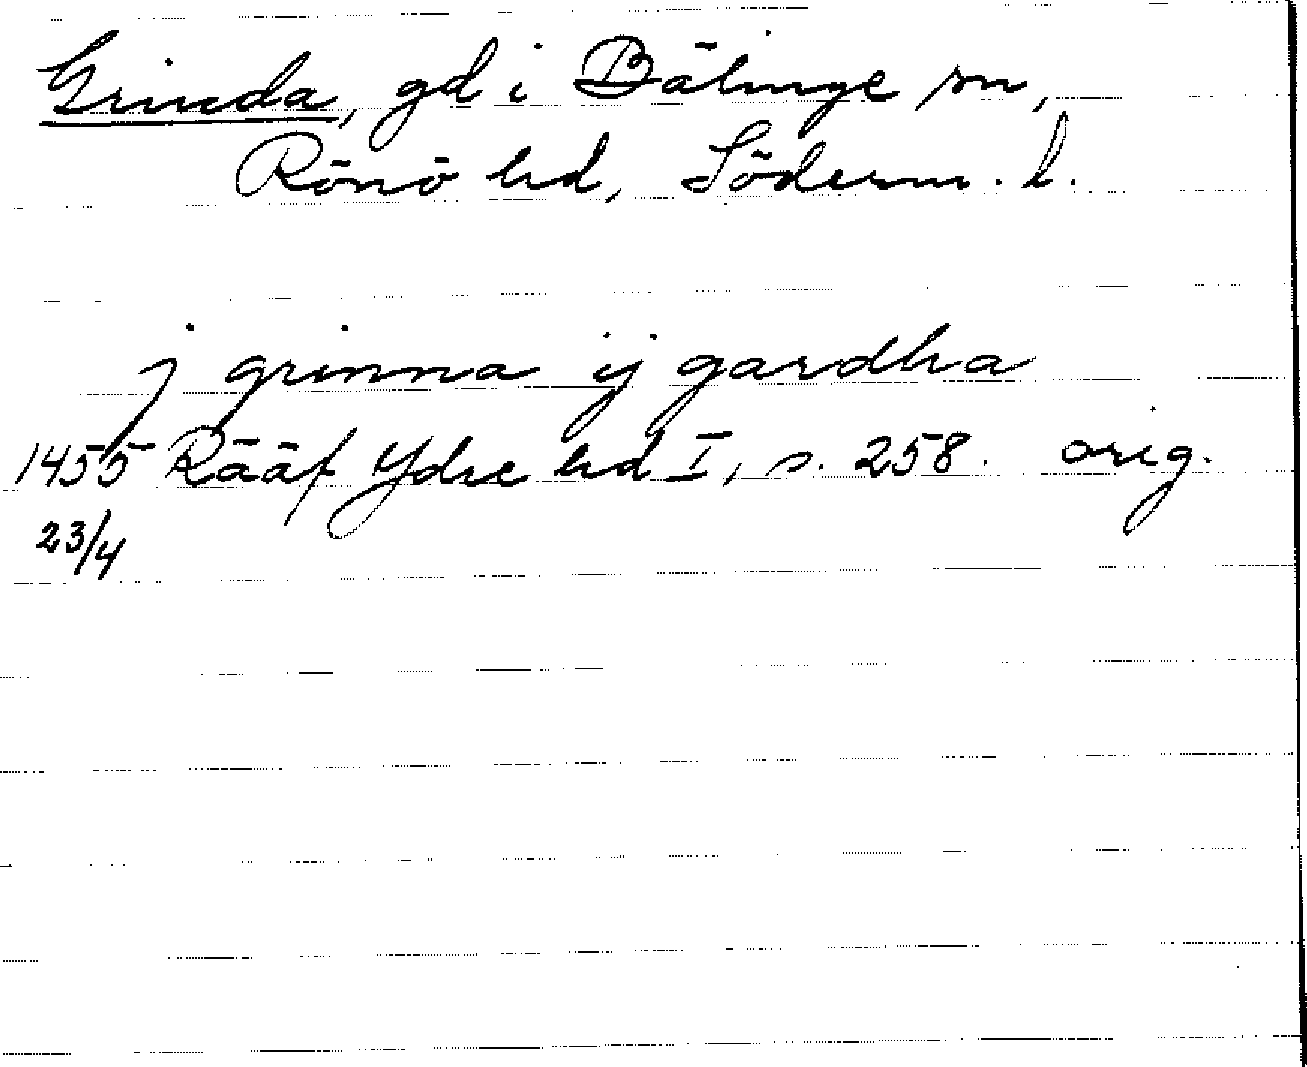 Grinda, gd i Bälinge sn,
Rönö hd, Söderm. l.
j grinna ij gardha
1455 Rääf Ydre hd I, s. 258. orig.
23/4